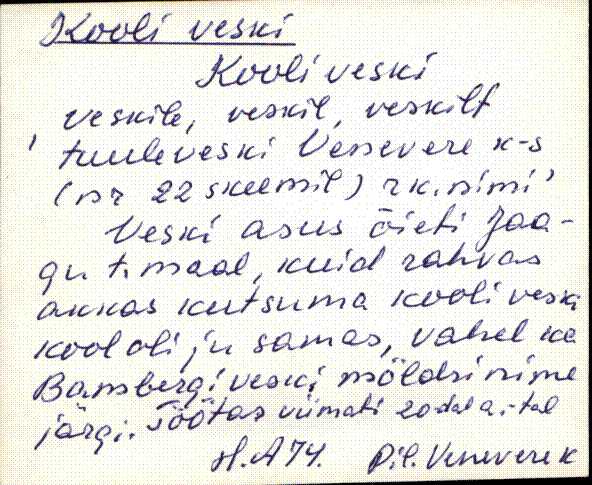 Kooli veski
Kooli veski
veskile, veskil, veskilt
' tuuleveski Venevere k-s
(nr 22 skeemil) rk. nimi'
Veski asus õieti Jaa-
gu t. maal, kuid rahvas
akkas kutsuma kooli veski
kool oli ju samas, vahel ka
Bambergi veski möldri nime
järgi. Töötas viimati 20-dal a.-tal
H. A 74. Pil. Venevere k